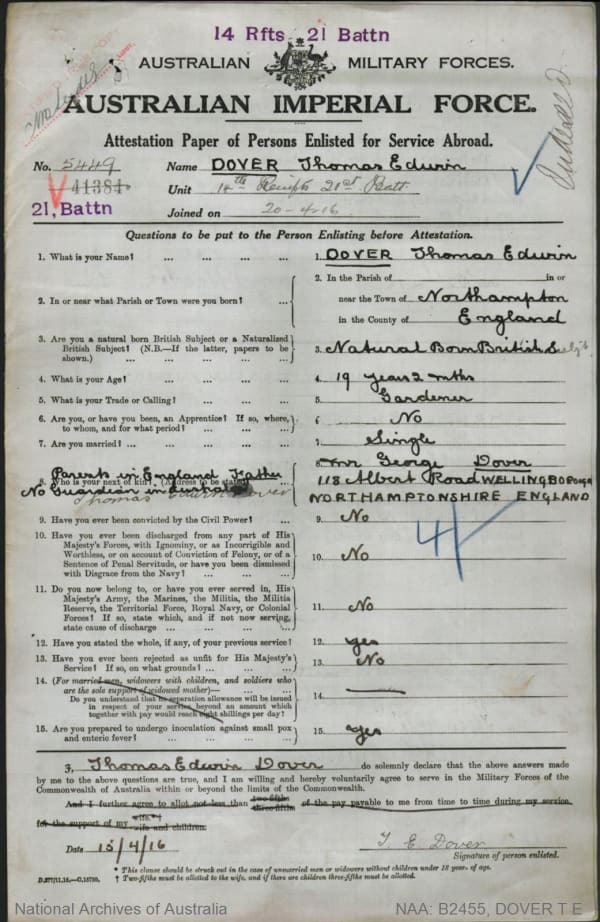 14 Rfts 21 Battn
AUSTRALIAN MILITARY FORCES.
AUSTRALIAN IMPERIAL FORCE.
Attestation Paper of Persons Enlisted for Service Abroad.
No. 5449 Name DOVER Thomas Edwin
41384 Unit 14th Reinfts 21st Batt.
21, Battn
Joined on 20-4-16
Questions to be put to the Person Enlisting before Attestation.
1. What is your Name? ... ... ... ... 1. DOVER Thomas Edwin
2. In or near what Parish or Town were you born? ... 2. In the Parish of in or
near the Town of Northampton
in the County of England
3. Are you a natural born British Subject or a Naturalized
British Subject? (N.B.—If the latter, papers to be
shown.) ... ... ... ... 3. Natural Born British Subjt
4. What is your Age? ... ... ... ... 4. 19 years 2 mths
5. What is your Trade or Calling? ... ... ... 5. Gardener
6. Are you, or have you been, an Apprentice? If so, where,
to whom, and for what period? ... ... ... 6. No
7. Are you married? ... ... ... ... 7. Single
Parents in England Father
8. Who is your next of kin? (Address to be stated) 8. Mr George Dover
No Guardian in
Thomas Edwin Dover
118 Albert Road WELLINGBOROUGH
NORTHAMPTONSHIRE ENGLAND
9. Have you ever been convicted by the Civil Power? ... 9. No
10. Have you ever been discharged from any part of His
Majesty's Forces, with Ignominy, or as Incorrigible and
Worthless, or on account of Conviction of Felony, or of a
Sentence of Penal Servitude, or have you been dismissed
with Disgrace from the Navy? ... ... ... 10. No
11. Do you now belong to, or have you ever served in, His
Majesty's Army, the Marines, the Militia, the Militia
Reserve, the Territorial Force, Royal Navy, or Colonial
Forces? If so, state which, and if not now serving,
state cause of discharge ... ... ... ... 11. No
12. Have you stated the whole, if any, of your previous service? 12. Yes
13. Have you ever been rejected as unfit for His Majesty's
Service? If so, on what grounds? ... ... ... 13. No
14. (For married men, widowers with children, and soldiers who
are the sole support of widowed mother)—
Do you understand that no separation allowance will be issued
in respect of your service beyond an amount which
together with pay would reach eight shillings per day? 14.
15. Are you prepared to undergo inoculation against small pox
and enteric fever? ... ... ... ... 15. Yes
I, Thomas Edwin Dover do solemnly declare that the above answers made
by me to the above questions are true, and I am willing and hereby voluntarily agree to serve in the Military Forces of the
Commonwealth of Australia within or beyond the limits of the Commonwealth.
And I further agree to allot not less than two-fifths three-fifths of the pay payable to me from time to time during my service
for the support of my wife.* wife and children.
Date 15/4/16 T. E. Dover
Signature of person enlisted.
* This clause should be struck out in the case of unmarried men or widowers without children under 18 years of age.
† Two-fifths must be allotted to the wife, and if there are children three-fifths must be allotted.
National Archives of Australia NAA: B2455, DOVER T E